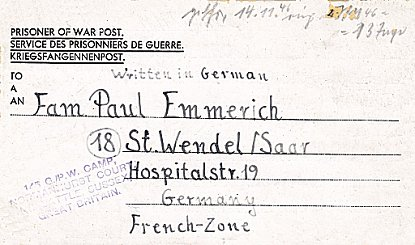 14.11.46
= 13 Tage
PRISONER OF WAR POST.
SERVICE DES PRISONNIERS DE GUERRE.
KRIEGSFANGENNENPOST.
Written in German
TO
A
AN
Fam Paul Emmerich
18 St. Wendel/Saar
Hospitalstr. 19
Germany
French-Zone
COURT
GREAT BRITAIN.